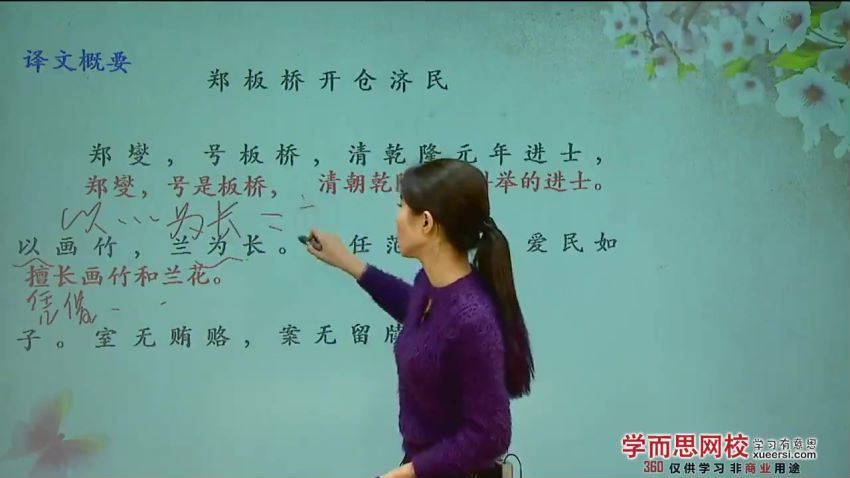 译文概要
郑板桥开仓济民
郑燮，号板桥，清乾隆元年进士，
郑燮，号是板桥， 清朝乾 举的进士。
以……为长 =
以画竹，兰为长。 任范 爱民如
擅长画竹和兰花。
凭借
子。室无贿赂，案无留牍
学而思网校 学习有意思
xueersi.com
360 仅供学习 非商业用途